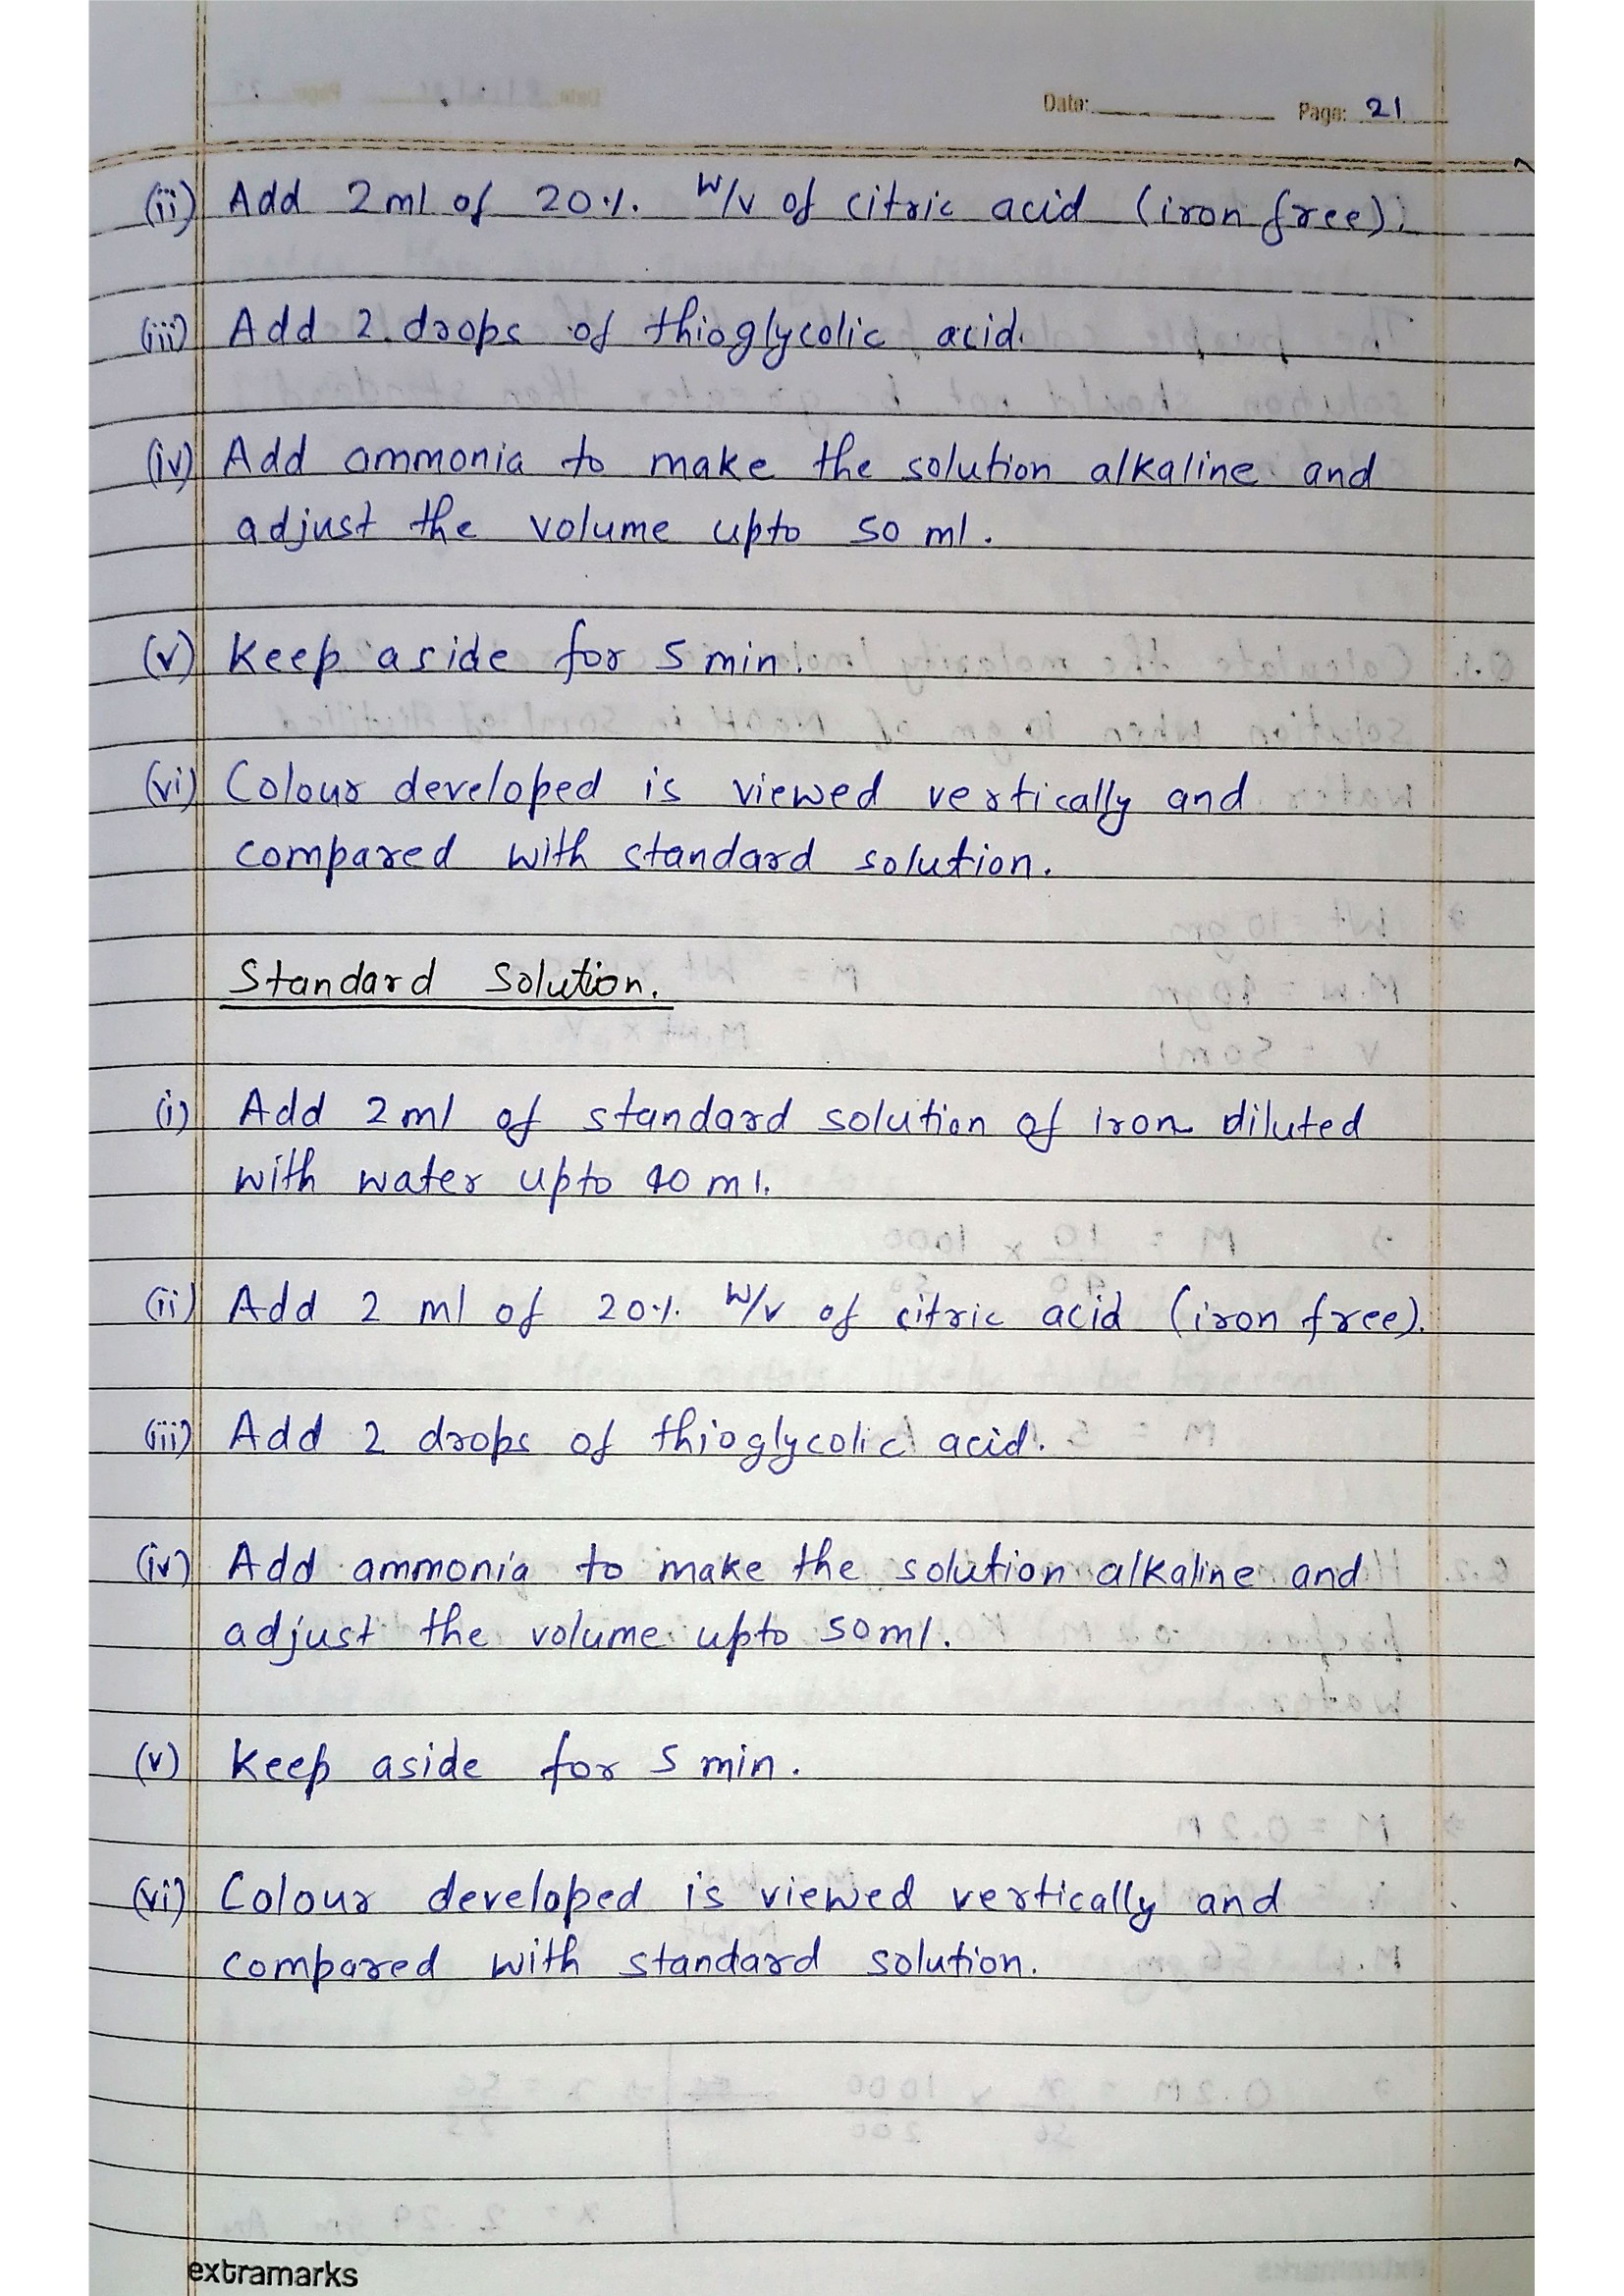 Date: Page: 21
(ii) Add 2ml of 20% w/v of citric acid (iron free).
(iii) Add 2 drops of thioglycolic acid.
(iv) Add ammonia to make the solution alkaline and
adjust the volume upto 50 ml.
(v) Keep aside for 5 min.
(vi) Colour developed is viewed vertically and
compared with standard solution.
Standard Solution.
(i) Add 2ml of standard solution of iron diluted
with water upto 40 ml.
(ii) Add 2 ml of 20% w/v of citric acid (iron free).
(iii) Add 2 drops of thioglycolic acid.
(iv) Add ammonia to make the solution alkaline and
adjust the volume upto 50ml.
(v) Keep aside for 5 min.
(vi) Colour developed is viewed vertically and
compared with standard solution.
extramarks